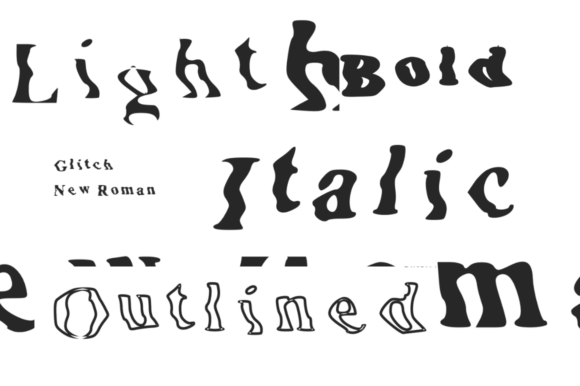 Light h Bold
Glitch
New Roman
Italic
e Outlined m